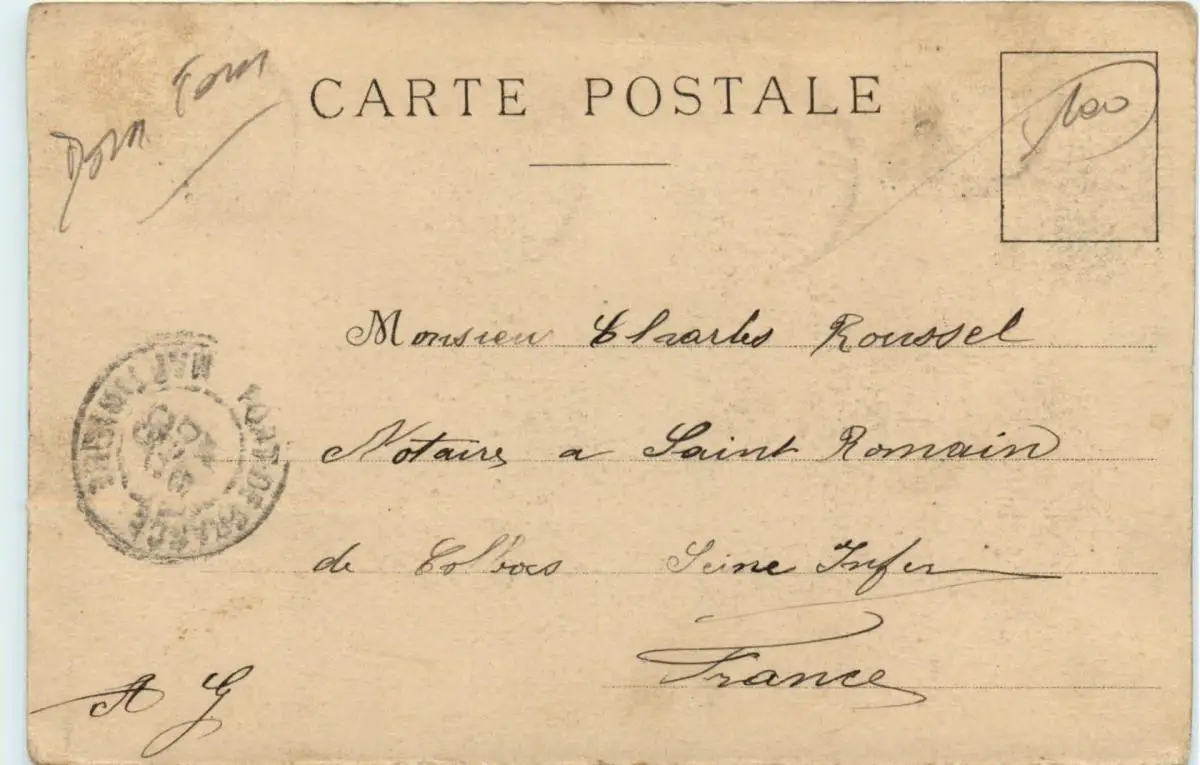 CARTE POSTALE
100
Monsieur Charles Roussel
Notaire a Saint Romain
de Colbocs Seine Infer
France
A G
MARTINIQUE
FORT-DE-FRANCE